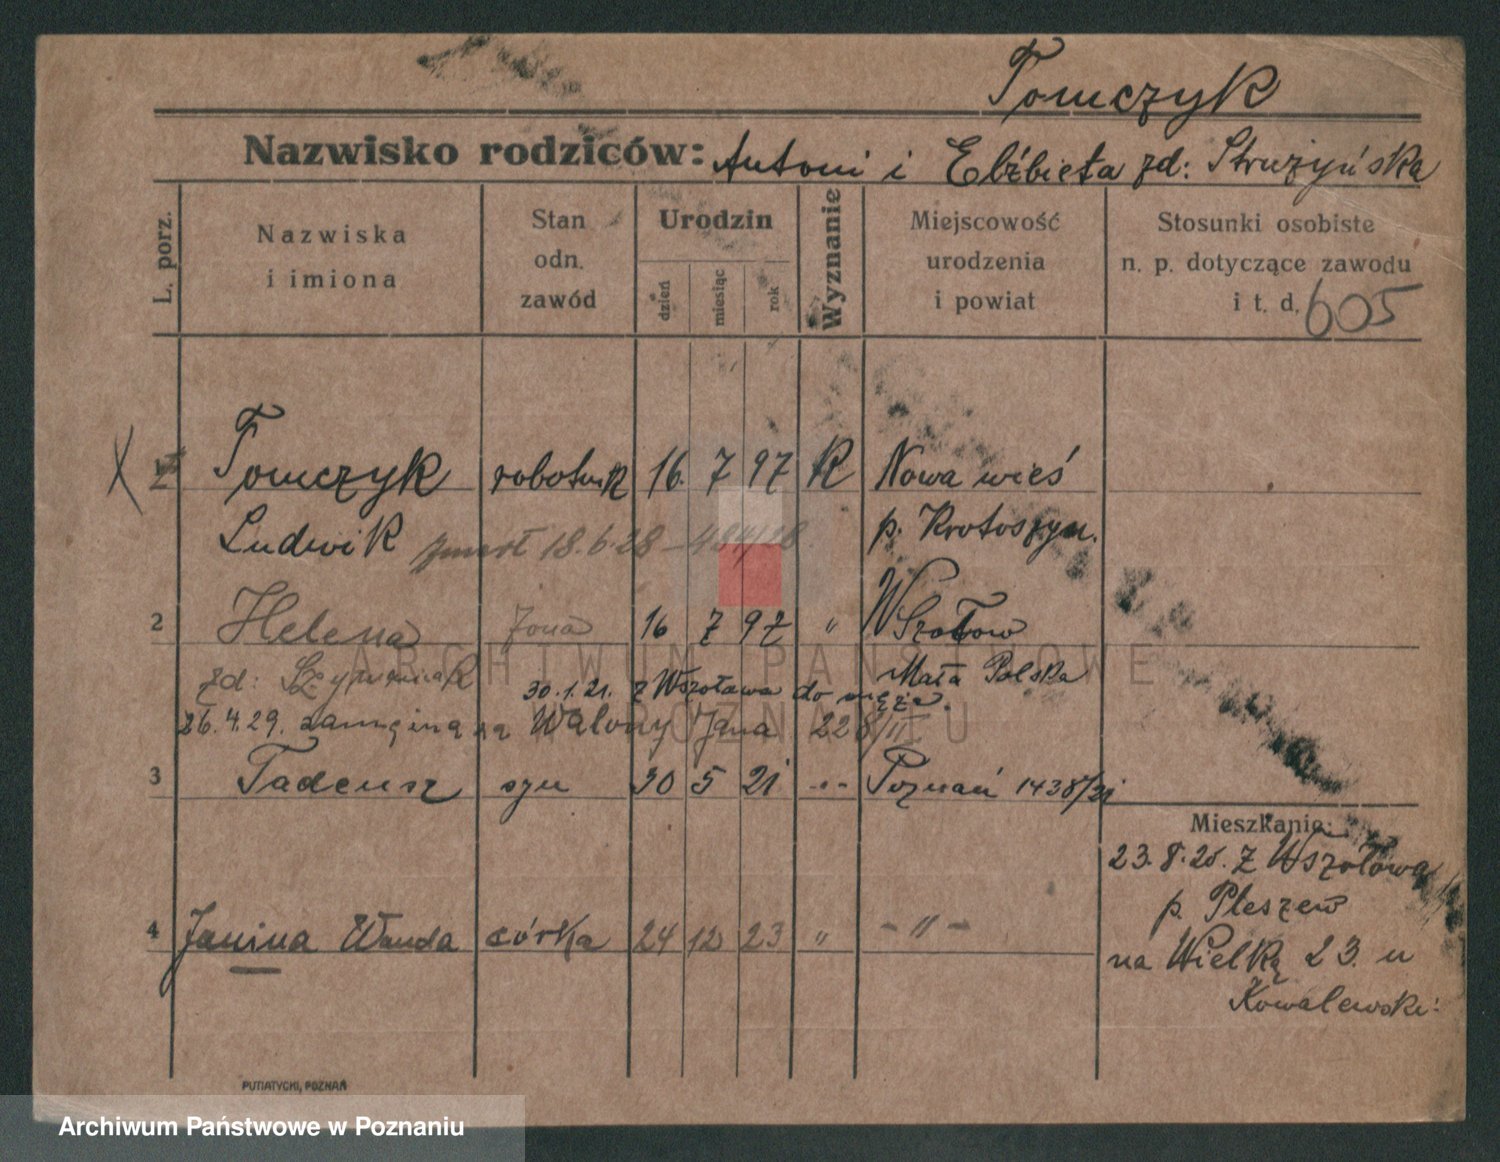 Tomczyk
Nazwisko rodziców: Antoni i Elżbieta zd: Strużyńska
L. porz.
Nazwiska
i imiona
Stan
odn.
zawód
Urodzin
dzień
miesiąc
rok
Wyznanie
Miejscowość
urodzenia
i powiat
Stosunki osobiste
n. p. dotyczące zawodu
i t. d. 605
X 1 Tomczyk robotnik 16. 7 97 R Nowa wieś
Ludwik zmarł 18.6.28 p. Krotoszyn.
2 Helena żona 16 7 97 " Wszołow
zd: Szymaniak Mała Polska
30.1.21. z Wszołowa do męża.
26.4.29. zamężna Jana 228/II
3 Tadeusz syn 30 5 21 -"- Poznań 1438/21
4 Janina Wanda córka 24 12 23 " - " -
Mieszkanie:
23.8.25. z Wszołowa
p. Pleszew
na Wielką 23. u
Kowalewski:
PUTIATYCKI, POZNAŃ
ARCHIWUM PAŃSTWOWE
W POZNANIU
Archiwum Państwowe w Poznaniu